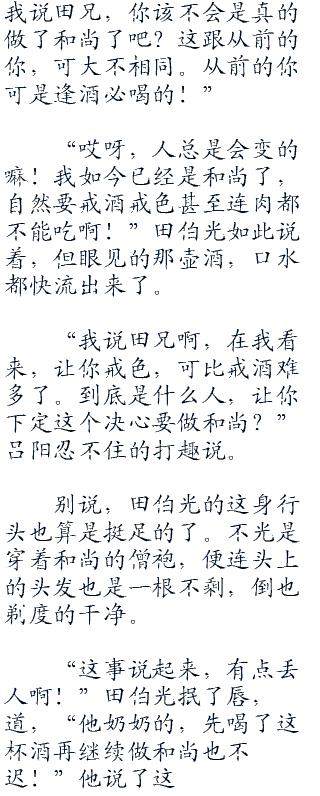 我说田兄，你该不会是真的
做了和尚了吧？这跟从前的
你，可大不相同。从前的你
可是逢酒必喝的！”
“哎呀，人总是会变的
嘛！我如今已经是和尚了，
自然要戒酒戒色甚至连肉都
不能吃啊！”田伯光如此说
着，但眼见的那壶酒，口水
都快流出来了。
“我说田兄啊，在我看
来，让你戒色，可比戒酒难
多了。到底是什么人，让你
下定这个决心要做和尚？”
吕阳忍不住的打趣说。
别说，田伯光的这身行
头也算是挺足的了。不光是
穿着和尚的僧袍，便连头上
的头发也是一根不剩，倒也
剃度的干净。
“这事说起来，有点丢
人啊！”田伯光抿了唇，
道，“他奶奶的，先喝了这
杯酒再继续做和尚也不
迟！”他说了这